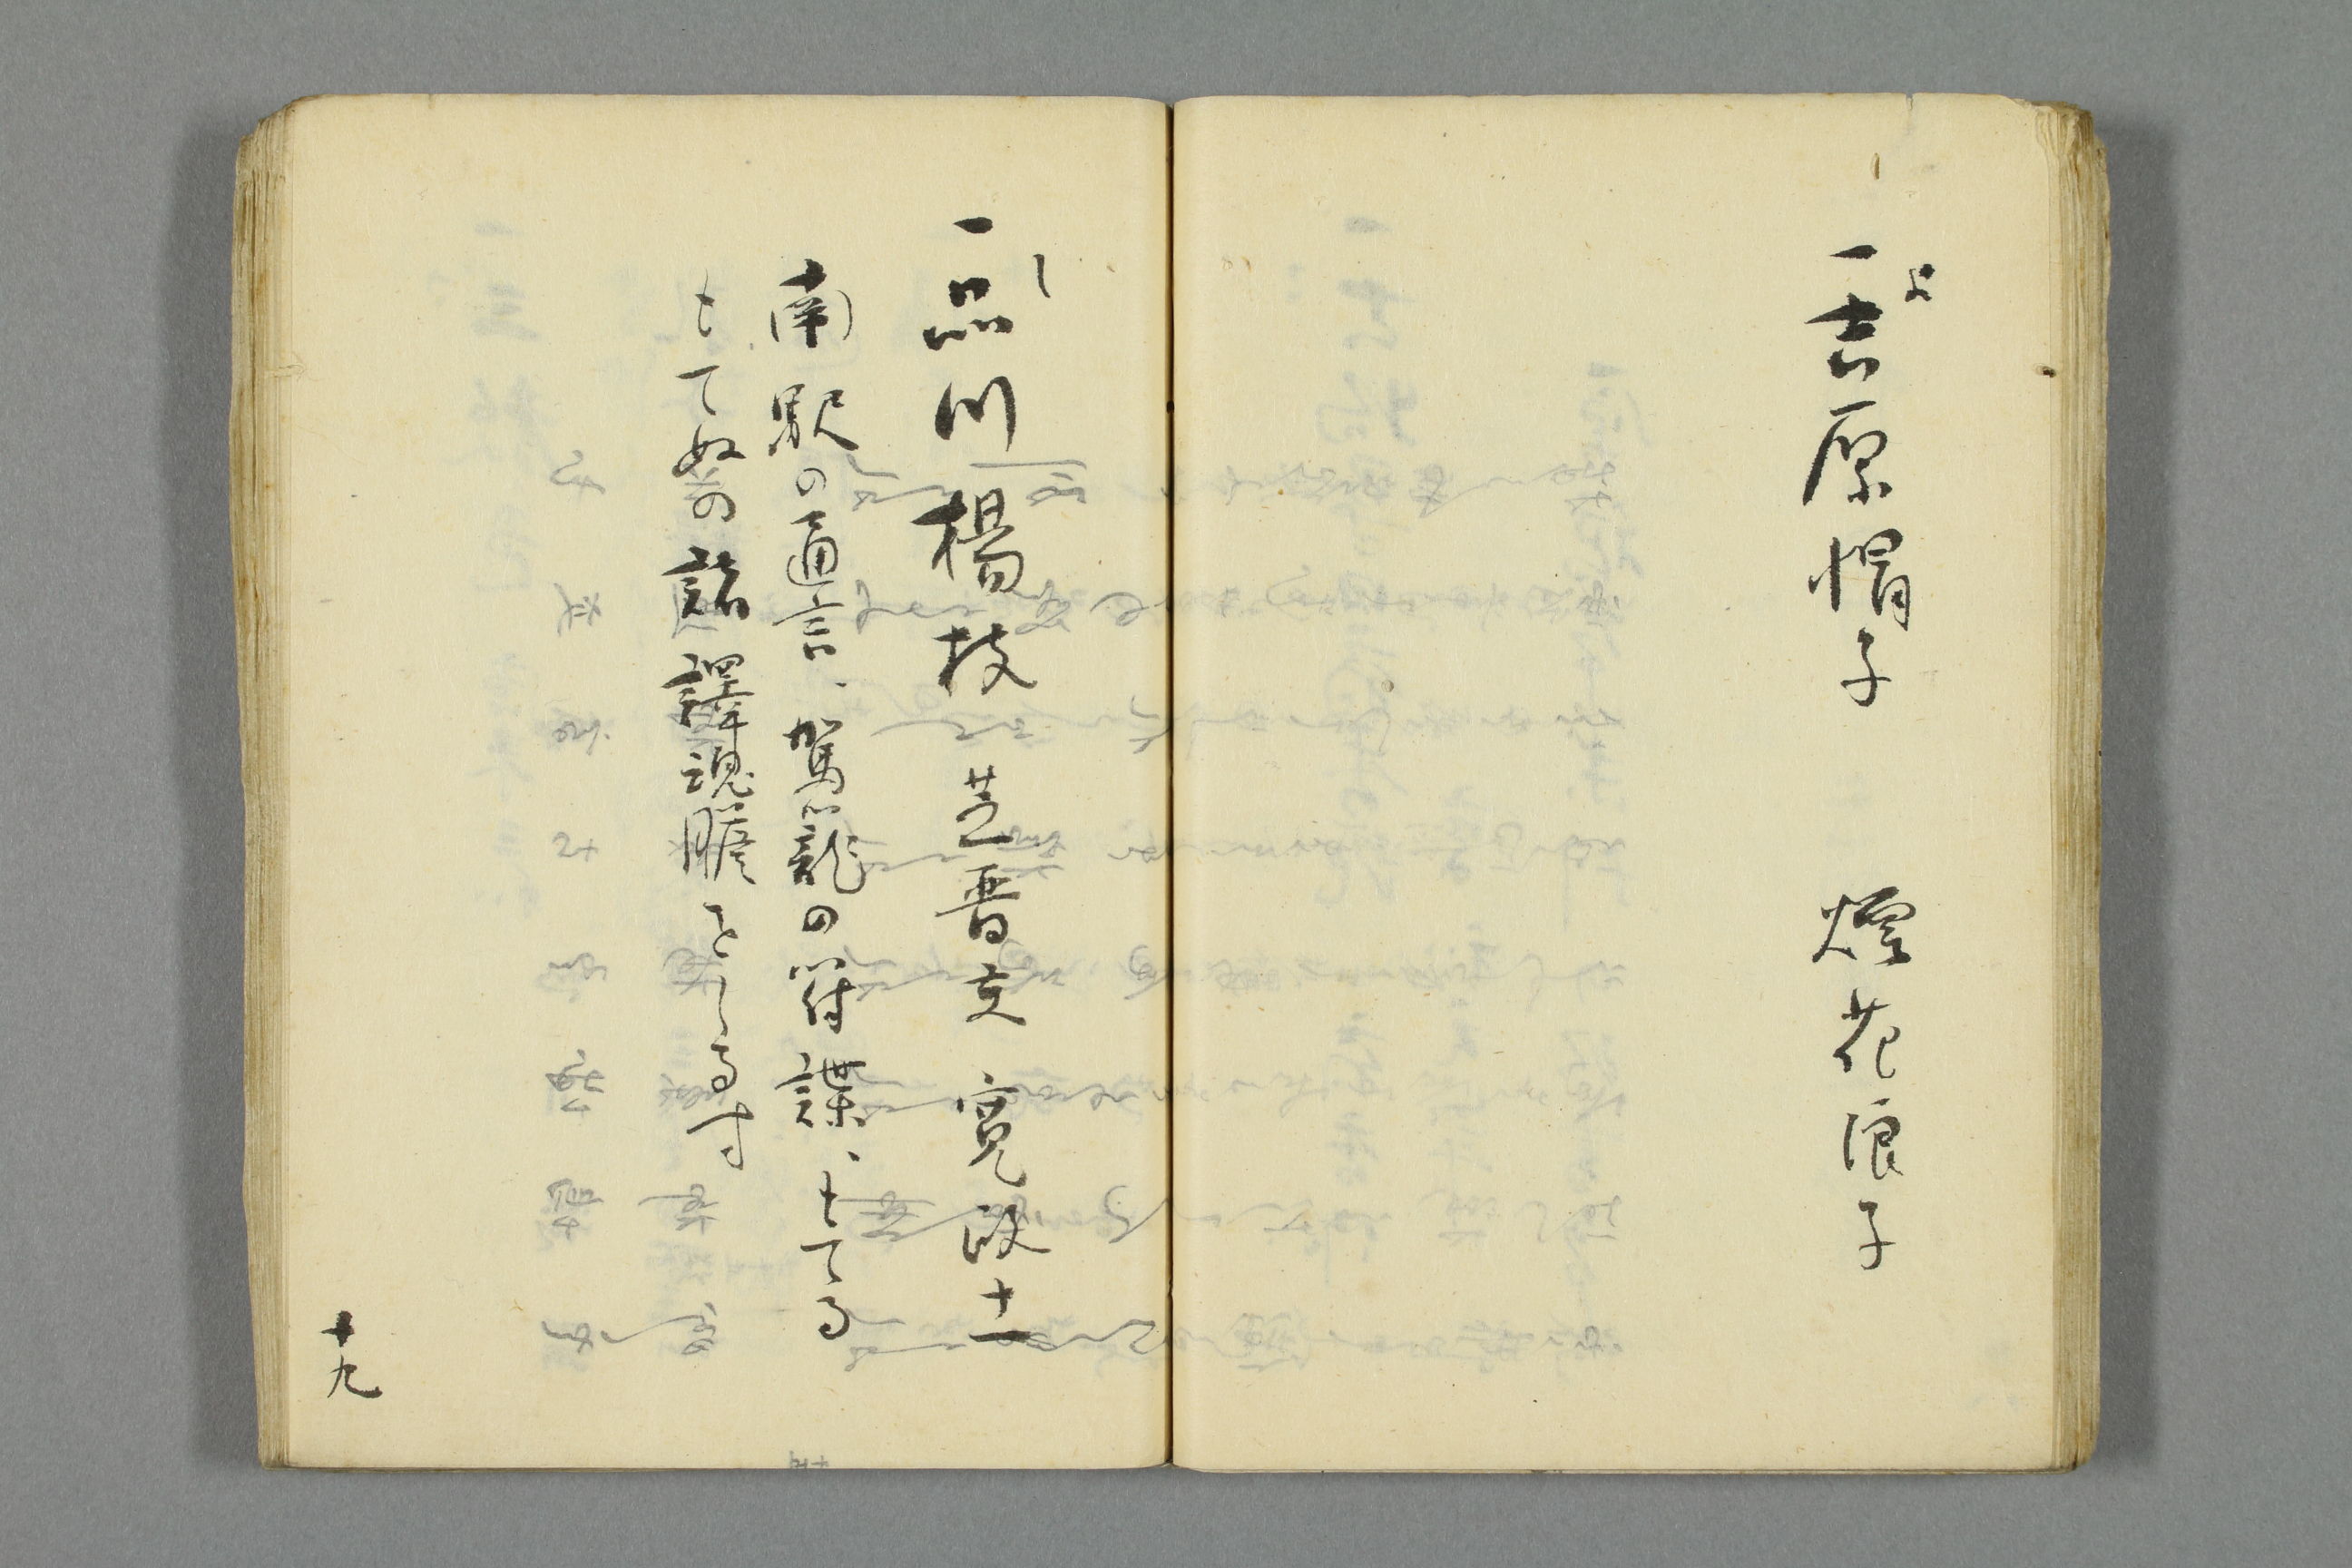 よ
一吉原帽子 煙花浪子
し
一品川楊枝 芝晋交 寛政十一
南駅の通言、駕籠の符諜、もてる
もてぬの諸譯魂胆をしるす
十九